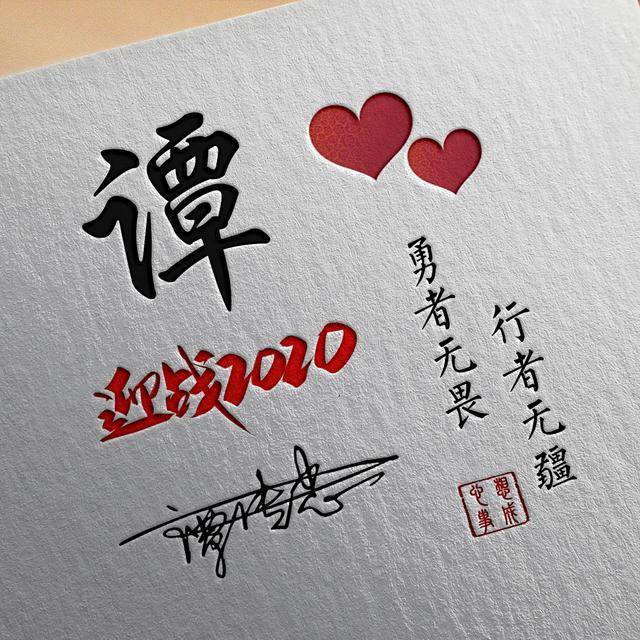 谭
迎战2020
行者无疆
勇者无畏
心想
事成